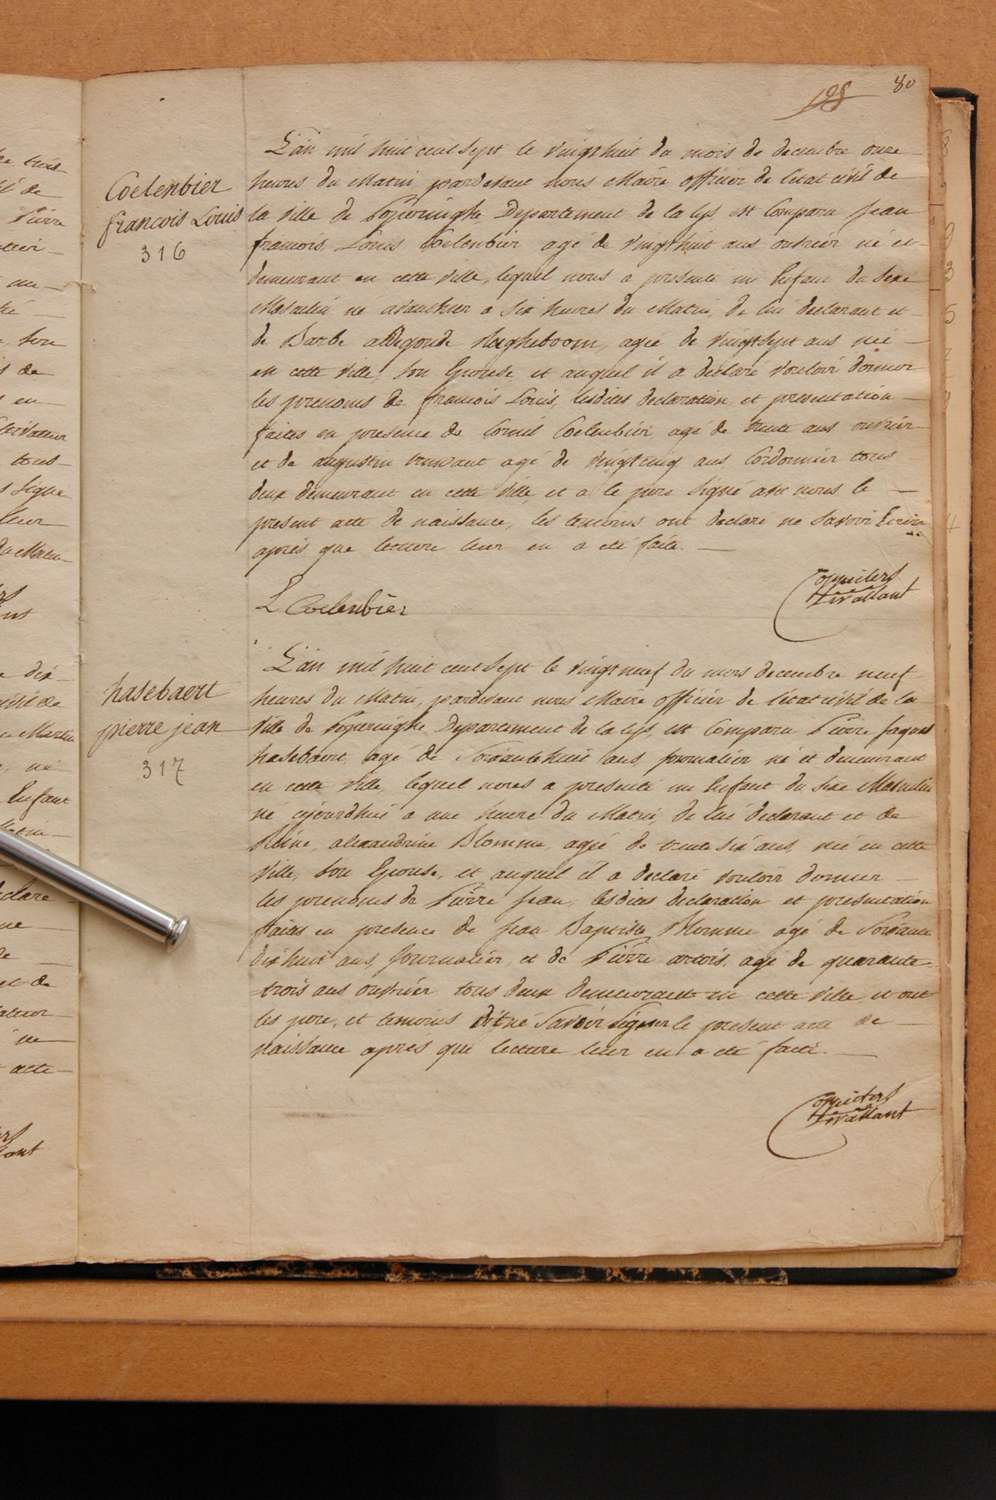 80
198
Coelenbier
francois Louis
316
L'an mil huit cent sept le vingthuit du mois de decembre onze
heures du Matin pardevant nous Maire officier de l'etat civil de
la ville de Poperinghe Departement de la lys est Comparu Jean
francois Louis Coelenbier agé de vingthuit ans ouvrier né et
demeurant en cette ville, lequel nous a presenté un Enfant du Sexe
Masculin né avanthier a six heures du Matin, de lui declarant et
de Barbe aldegonde Haegheboom, agée de vingtsept ans née
en cette ville, son Epouse et auquel il a declaré vouloir donner
les prenoms de francois Louis, lesdites declaration et presentation
faites en presence de Cornil Coelenbier agé de trente ans ouvrier
et de augustin agé de vingtcinq ans Cordonnier tous
deux demeurant en cette ville et a le pere signé avec nous le
present acte de naissance, les temoins ont declaré ne savoir Ecrire
après que lecture leur en a été faite.
L Coelenbier
hasebaert
pierre jean
317
L'an mil huit cent sept le vingtneuf du mois decembre neuf
heures du Matin, pardevant nous Maire officier de l'état civil de la
ville de Poperinghe Departement de la lys, est Comparu Pierre jaques
hasebaert agé de Soixantehuit ans journalier né et demeurant
en cette ville, lequel nous a presenté un Enfant du sexe Masculin
né cejourdhui a une heure du Matin, de lui declarant et de
Reine alexandrine Blomme, agée de trente six ans, née en cette
ville, son Epouse, et auquel il a declaré vouloir donner
les prenoms de Pierre Jean, lesdites declaration et presentation
faites en presence de Jean Baptiste Blomme agé de Soixante
dixhuit ans, Journalier, et de Pierre artois, agé de quarante
trois ans ouvrier tous deux demeurant en cette ville, et ont
les pere, et temoins dit ne Savoir Signer le present acte de
naissance après que lecture leur en a été faite.